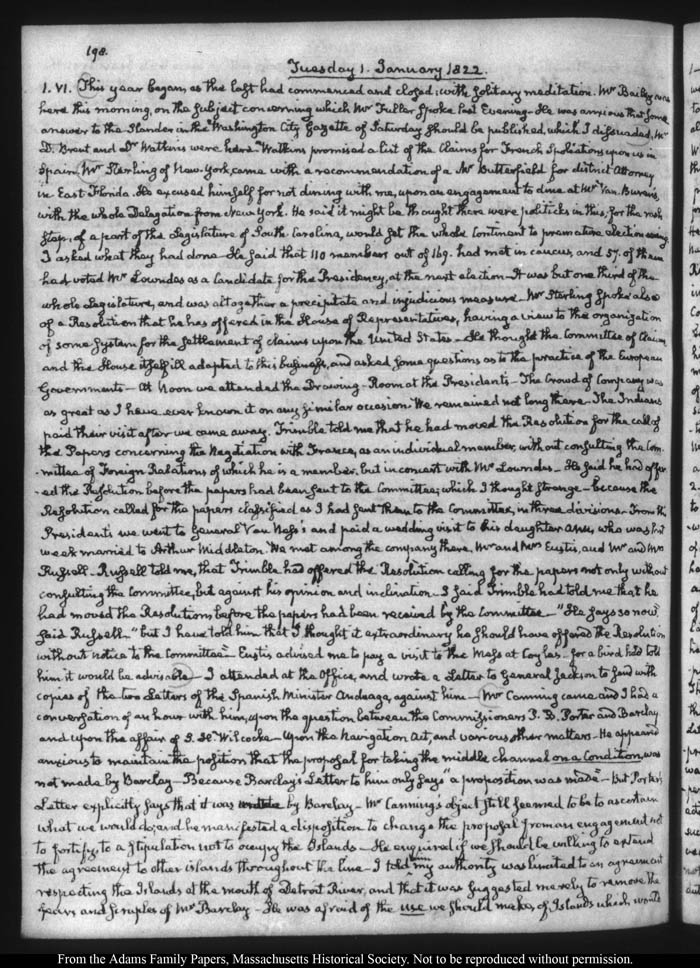 198.
Tuesday 1. January 1822.
1. VI. This year began, as the last had commenced and closed; with solitary meditation. Mr Bailey came
here this morning, on the subject concerning which Mr Fuller spoke last Evening. He was anxious that some
answer to the slander in the Washington City Gazette of Saturday should be published, which I dissuaded. Mr
D. Brent and Dr Watkins were here. Watkins promised a list of the Claims for French Spoliations upon us in
Spain. Mr Sterling of New-York, came with a recommendation of a Mr Butterfield for district Attorney
in East Florida. He excused himself for not dining with me, upon an engagement to dine at Mr Van Buren's,
with the whole Delegation from New York. He said it might be thought there were politicks in this, for the rash
step, of a part of the Legislature of South Carolina, would set the whole Continent to premature electioneering
I asked what they had done. He said that 110 members out of 169. had met in caucus, and 57. of them
had voted Mr Lowndes as a Candidate for the Presidency, at the next election. It was but one third of the
whole Legislature, and was altogether a precipitate and injudicious measure. Mr Sterling spoke also
of a Resolution that he has offered in the House of Representatives, having a view to the organization
of some system for the settlement of claims upon the United States. He thought the Committee of Claims
and the House itself ill adapted to this business, and asked some questions as to the practice of the European
Governments. At Noon we attended the Drawing-Room at the Presidents. The Crowd of Company was
as great as I have ever known it on any similar occasion. We remained not long there. The Indians
paid their visit after we came away. Trimble told me that he had moved the Resolution for the call of
the Papers concerning the Negotiation with France, as an individual member, without consulting the Com-
-mittee of Foreign Relations of which he is a member, but in concert with Mr Lowndes. He said he had offer-
-ed the Resolution before the papers had been sent to the Committee; which I thought strange. because the
Resolution called for the papers classified as I had sent them to the Committee, in three divisions. From the
Presidents we went to General Van Ness's and paid a wedding visit to his daughter Ann, who was last
week married to Arthur Middleton. We met among the company there, Mr and Mrs Eustis, and Mr and Mrs
Russell. Russell told me, that Trimble had offered the Resolution calling for the papers not only without
consulting the Committee, but against his opinion and inclination. I said Trimble had told me that he
had moved the Resolutions before the papers had been received by the Committee. "He says so now"
said Russell, "but I have told him that I thought it extraordinary he should have offered the Resolution
without notice to the Committee". Eustis advised me to pay a visit to the Mess at Coyles. for a bird had told
him it would be advisable. I attended at the Office, and wrote a Letter to General Jackson to send with
copies of the two Letters of the Spanish Minister Anduaga, against him. Mr Canning came and I had a
conversation of an hour with him, upon the question between the Commissioners P. B. Porter and Barclay
and upon the affair of S. H. Wilcocke. Upon the Navigation Act, and various other matters. He appeared
anxious to maintain the position that the proposal for taking the middle channel on a Condition, was
not made by Barclay. Because Barclay's Letter to him only says "a proposition was made". but Porter's
Letter explicitly says that it was by Barclay. Mr Canning's object still seemed to be to ascertain
what we would do; and he manifested a disposition to change the proposal from an engagement not
to fortify, to a stipulation not to occupy the Islands. He enquired if we should be willing to extend
the agreement to other islands throughout the line. I told my authority was limited to an agreement
respecting the Islands at the mouth of Detroit River, and that it was suggested merely to remove the
fears and scruples of Mr Barclay. He was afraid of the use we should make, of Islands which would
From the Adams Family Papers, Massachusetts Historical Society. Not to be reproduced without permission.